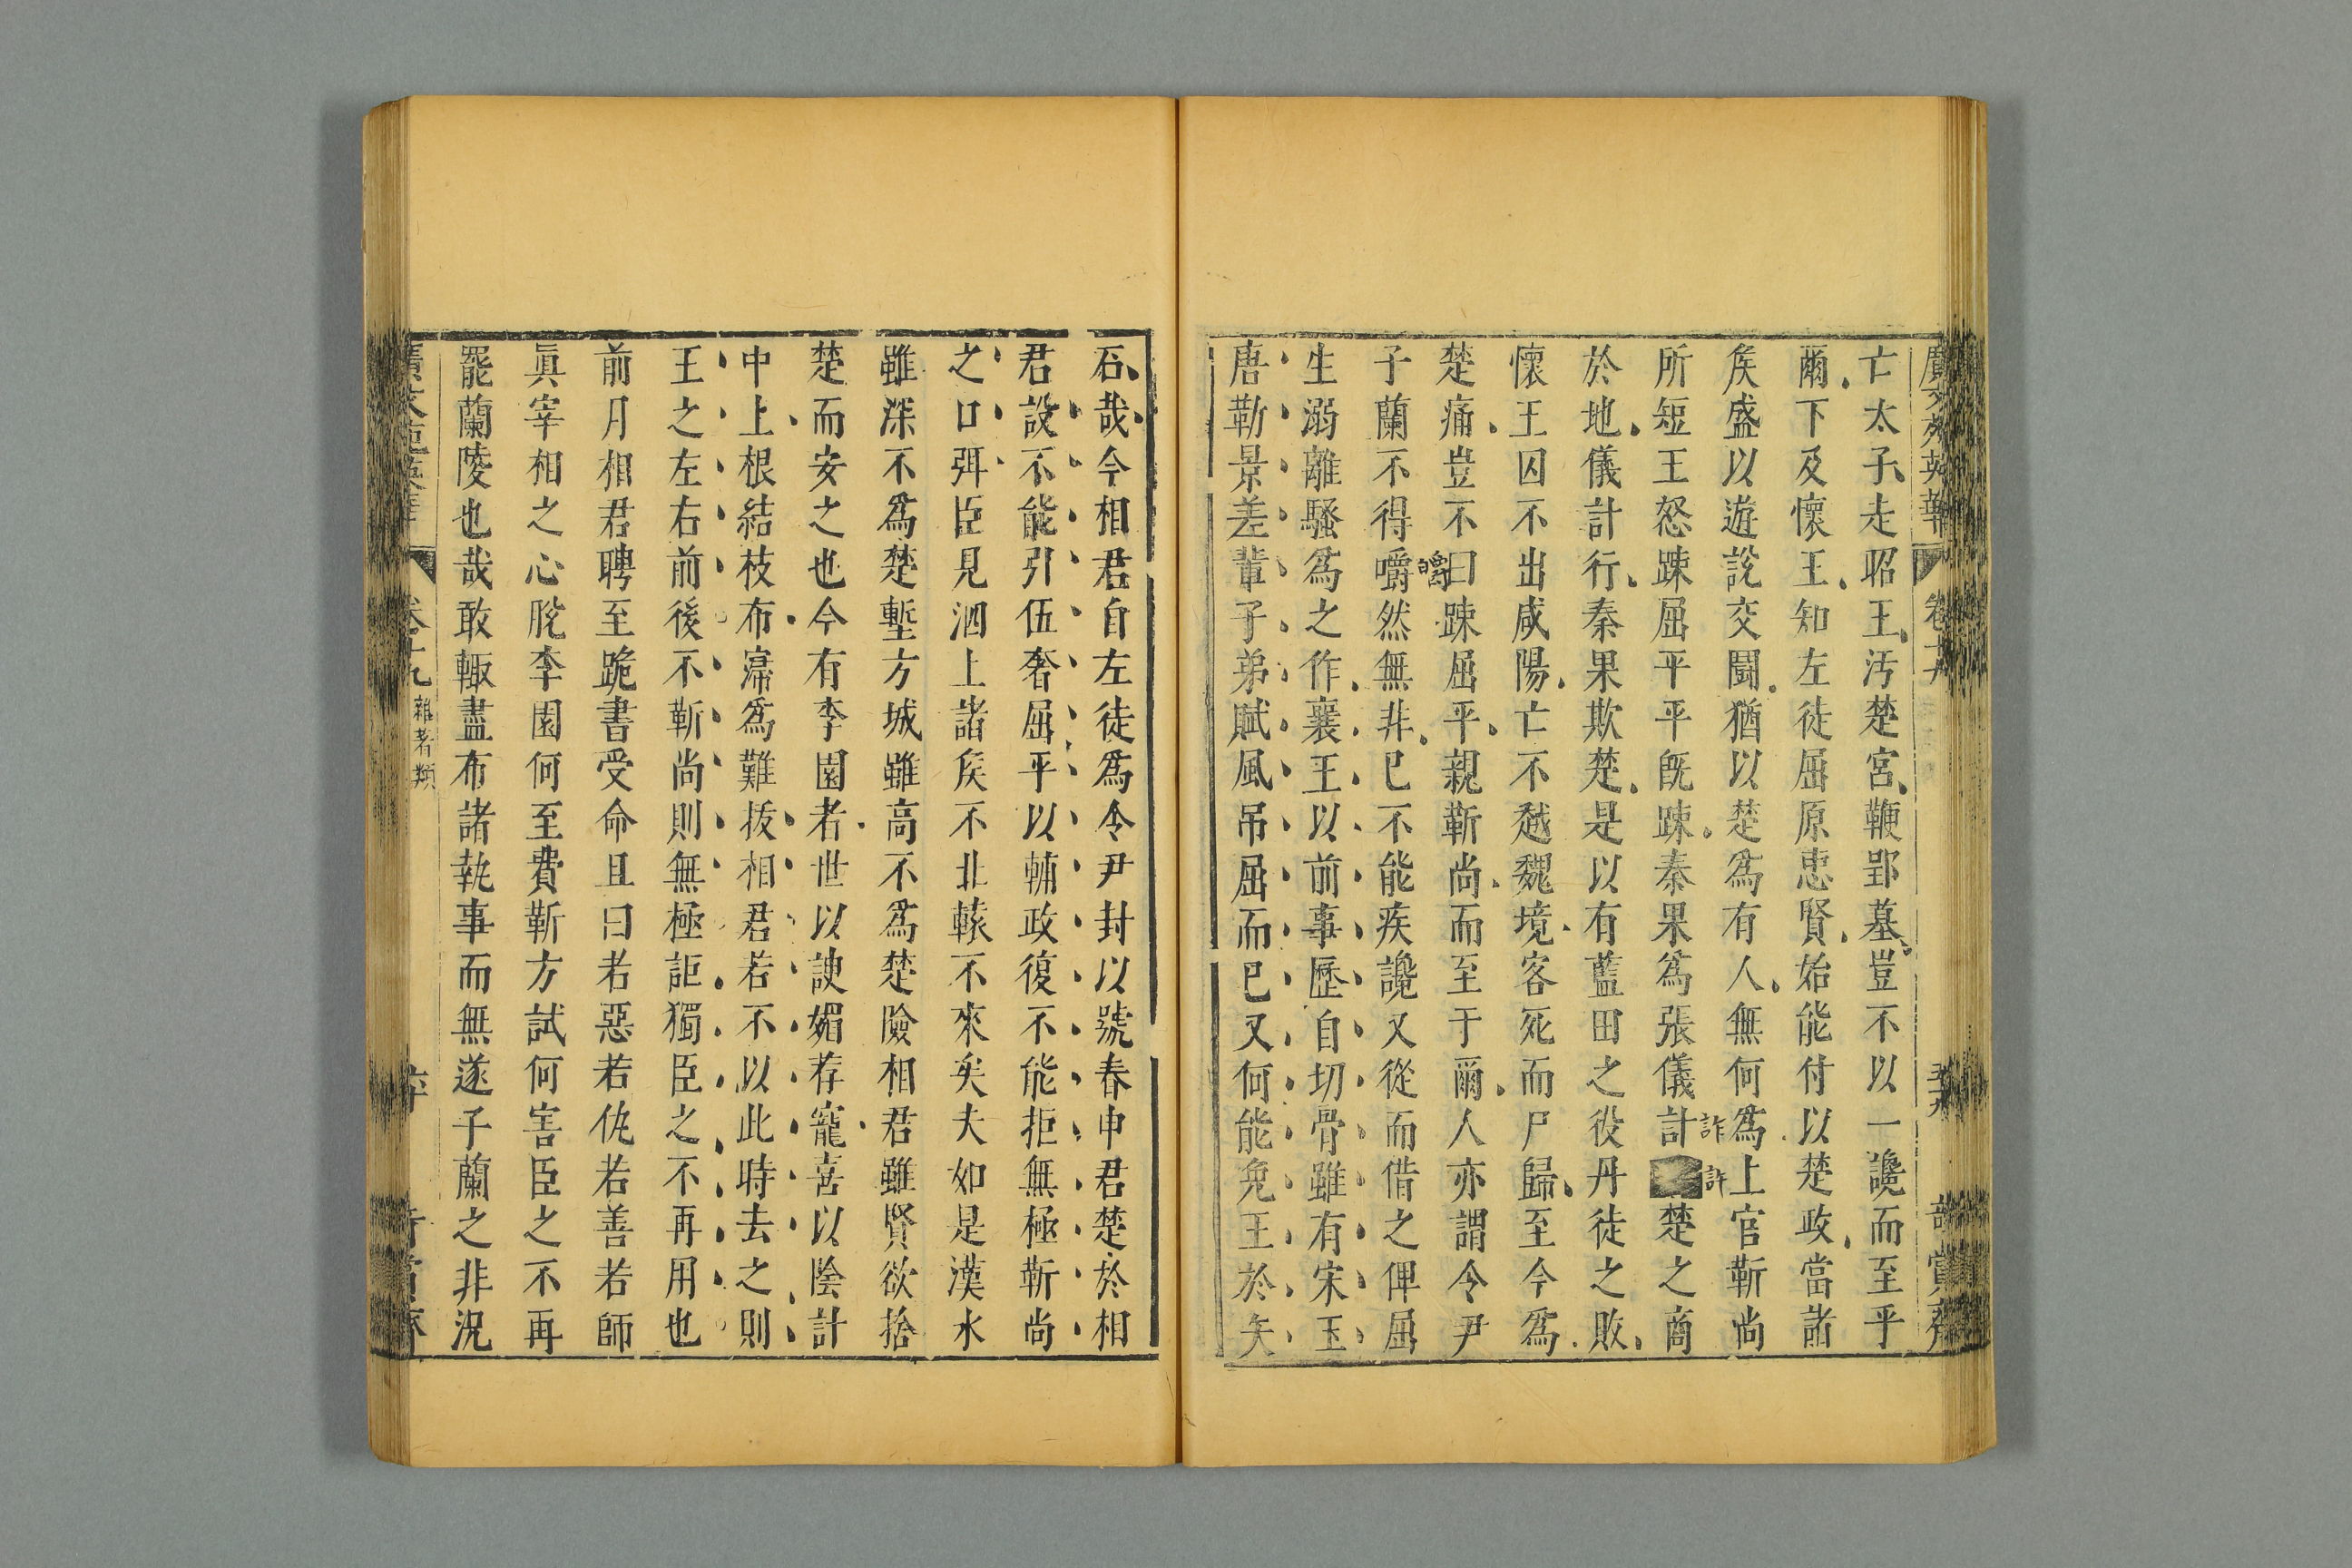 廣文苑英華 卷十九
亡太子走昭王汚楚宮鞭郢墓豈不以一讒而至乎
爾下及懷王知左徒屈原忠賢始能付以楚政當諸
矦盛以遊說交鬬猶以楚爲有人無何爲上官靳尚
所短王怒踈屈平平旣踈秦果爲張儀計詐許楚之商
於地儀計行秦果欺楚是以有藍田之役丹徒之敗
懷王囚不出咸陽亡不越魏境客死而尸歸至今爲
楚痛豈不曰踈屈平親靳尚而至于爾人亦謂令尹
子蘭不得嚼皭然無非巳不能疾讒又從而借之俾屈
生溺離騷爲之作襄王以前事歷自切骨雖有宋玉
唐勒景差輩子弟賦風吊屈而巳又何能免王於矢
石哉今相君自左徒爲令尹封以號春申君楚於相
君設不能引伍奢屈平以輔政復不能拒無極靳尚
之口弭臣見泗上諸矦不北轅不來矣夫如是漢水
雖深不爲楚塹方城雖高不爲楚險相君雖賢欲捨
楚而安之也今有李園者世以諛媚荐寵喜以陰計
中上根結枝布寖爲難拔相君若不以此時去之則
王之左右前後不靳尚則無極詎獨臣之不再用也
前月相君聘至跪書受命且曰若惡若仇若善若師
眞宰相之心脫李園何至費靳方試何害臣之不再
罷蘭陵也哉敢輙盡布諸執事而無遂子蘭之非況
卷十九 雜著類